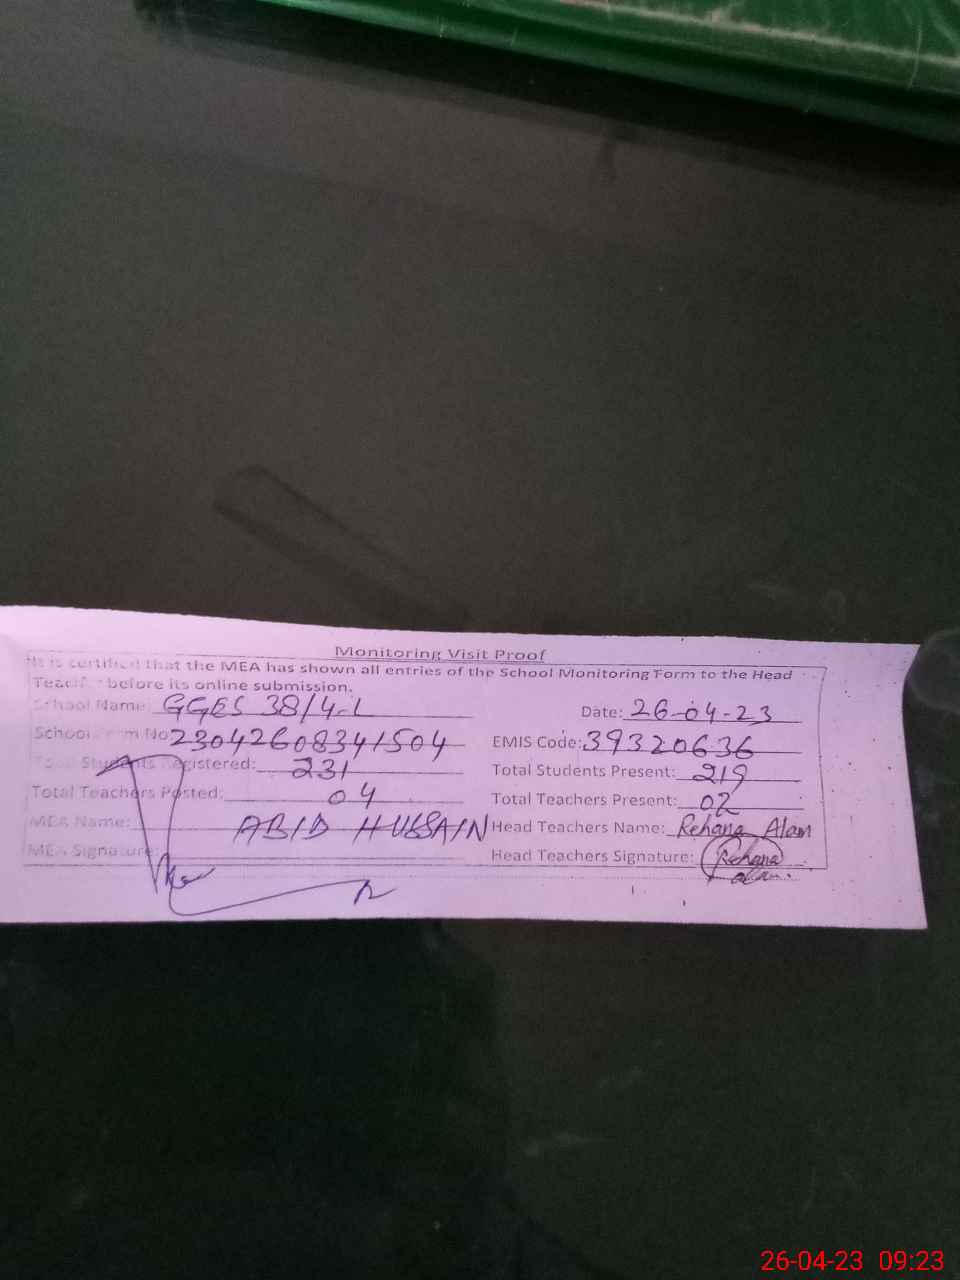 Monitoring Visit Proof
It is certified that the MEA has shown all entries of the School Monitoring Form to the Head
Teacher before its online submission.
School Name: GGES 38/4-L Date: 26-04-23
School Form No 23042608341504 EMIS Code: 39320636
Total Students Registered: 231 Total Students Present: 219
Total Teachers Posted: 04 Total Teachers Present: 02
MEA Name: ABID HUSSAIN Head Teachers Name: Rehana Alam
MEA Signature: Head Teachers Signature: Rehana
Alam.
26-04-23 09:23